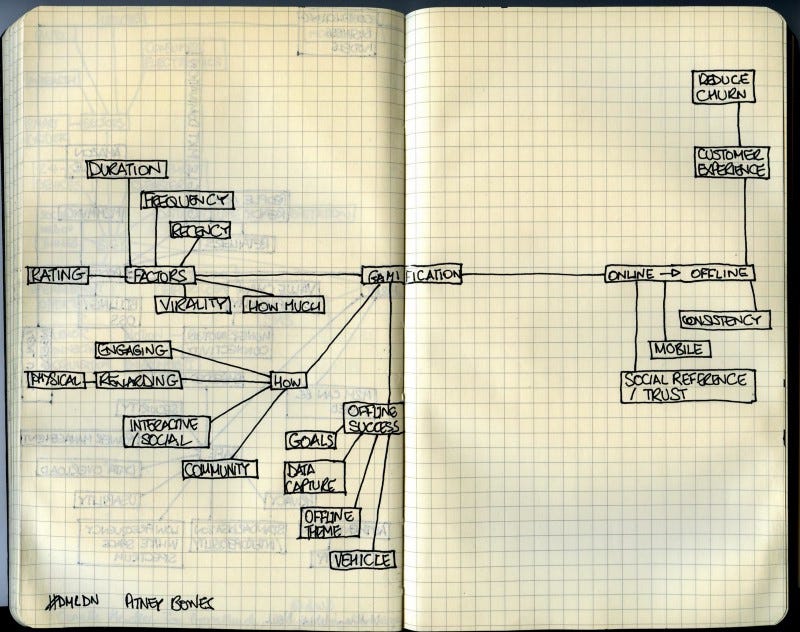 REDUCE
CHURN
CUSTOMER
EXPERIENCE
DURATION
FREQUENCY
RECENCY
RATING
FACTORS
GAMIFICATION
ONLINE → OFFLINE
VIRALITY
HOW MUCH
CONSISTENCY
ENGAGING
MOBILE
PHYSICAL
REWARDING
HOW
SOCIAL REFERENCE
/ TRUST
OFFLINE
SUCCESS
INTERACTIVE
/ SOCIAL
GOALS
COMMUNITY
DATA
CAPTURE
OFFLINE
THEME
VEHICLE
#DMLDN PITNEY BOWES